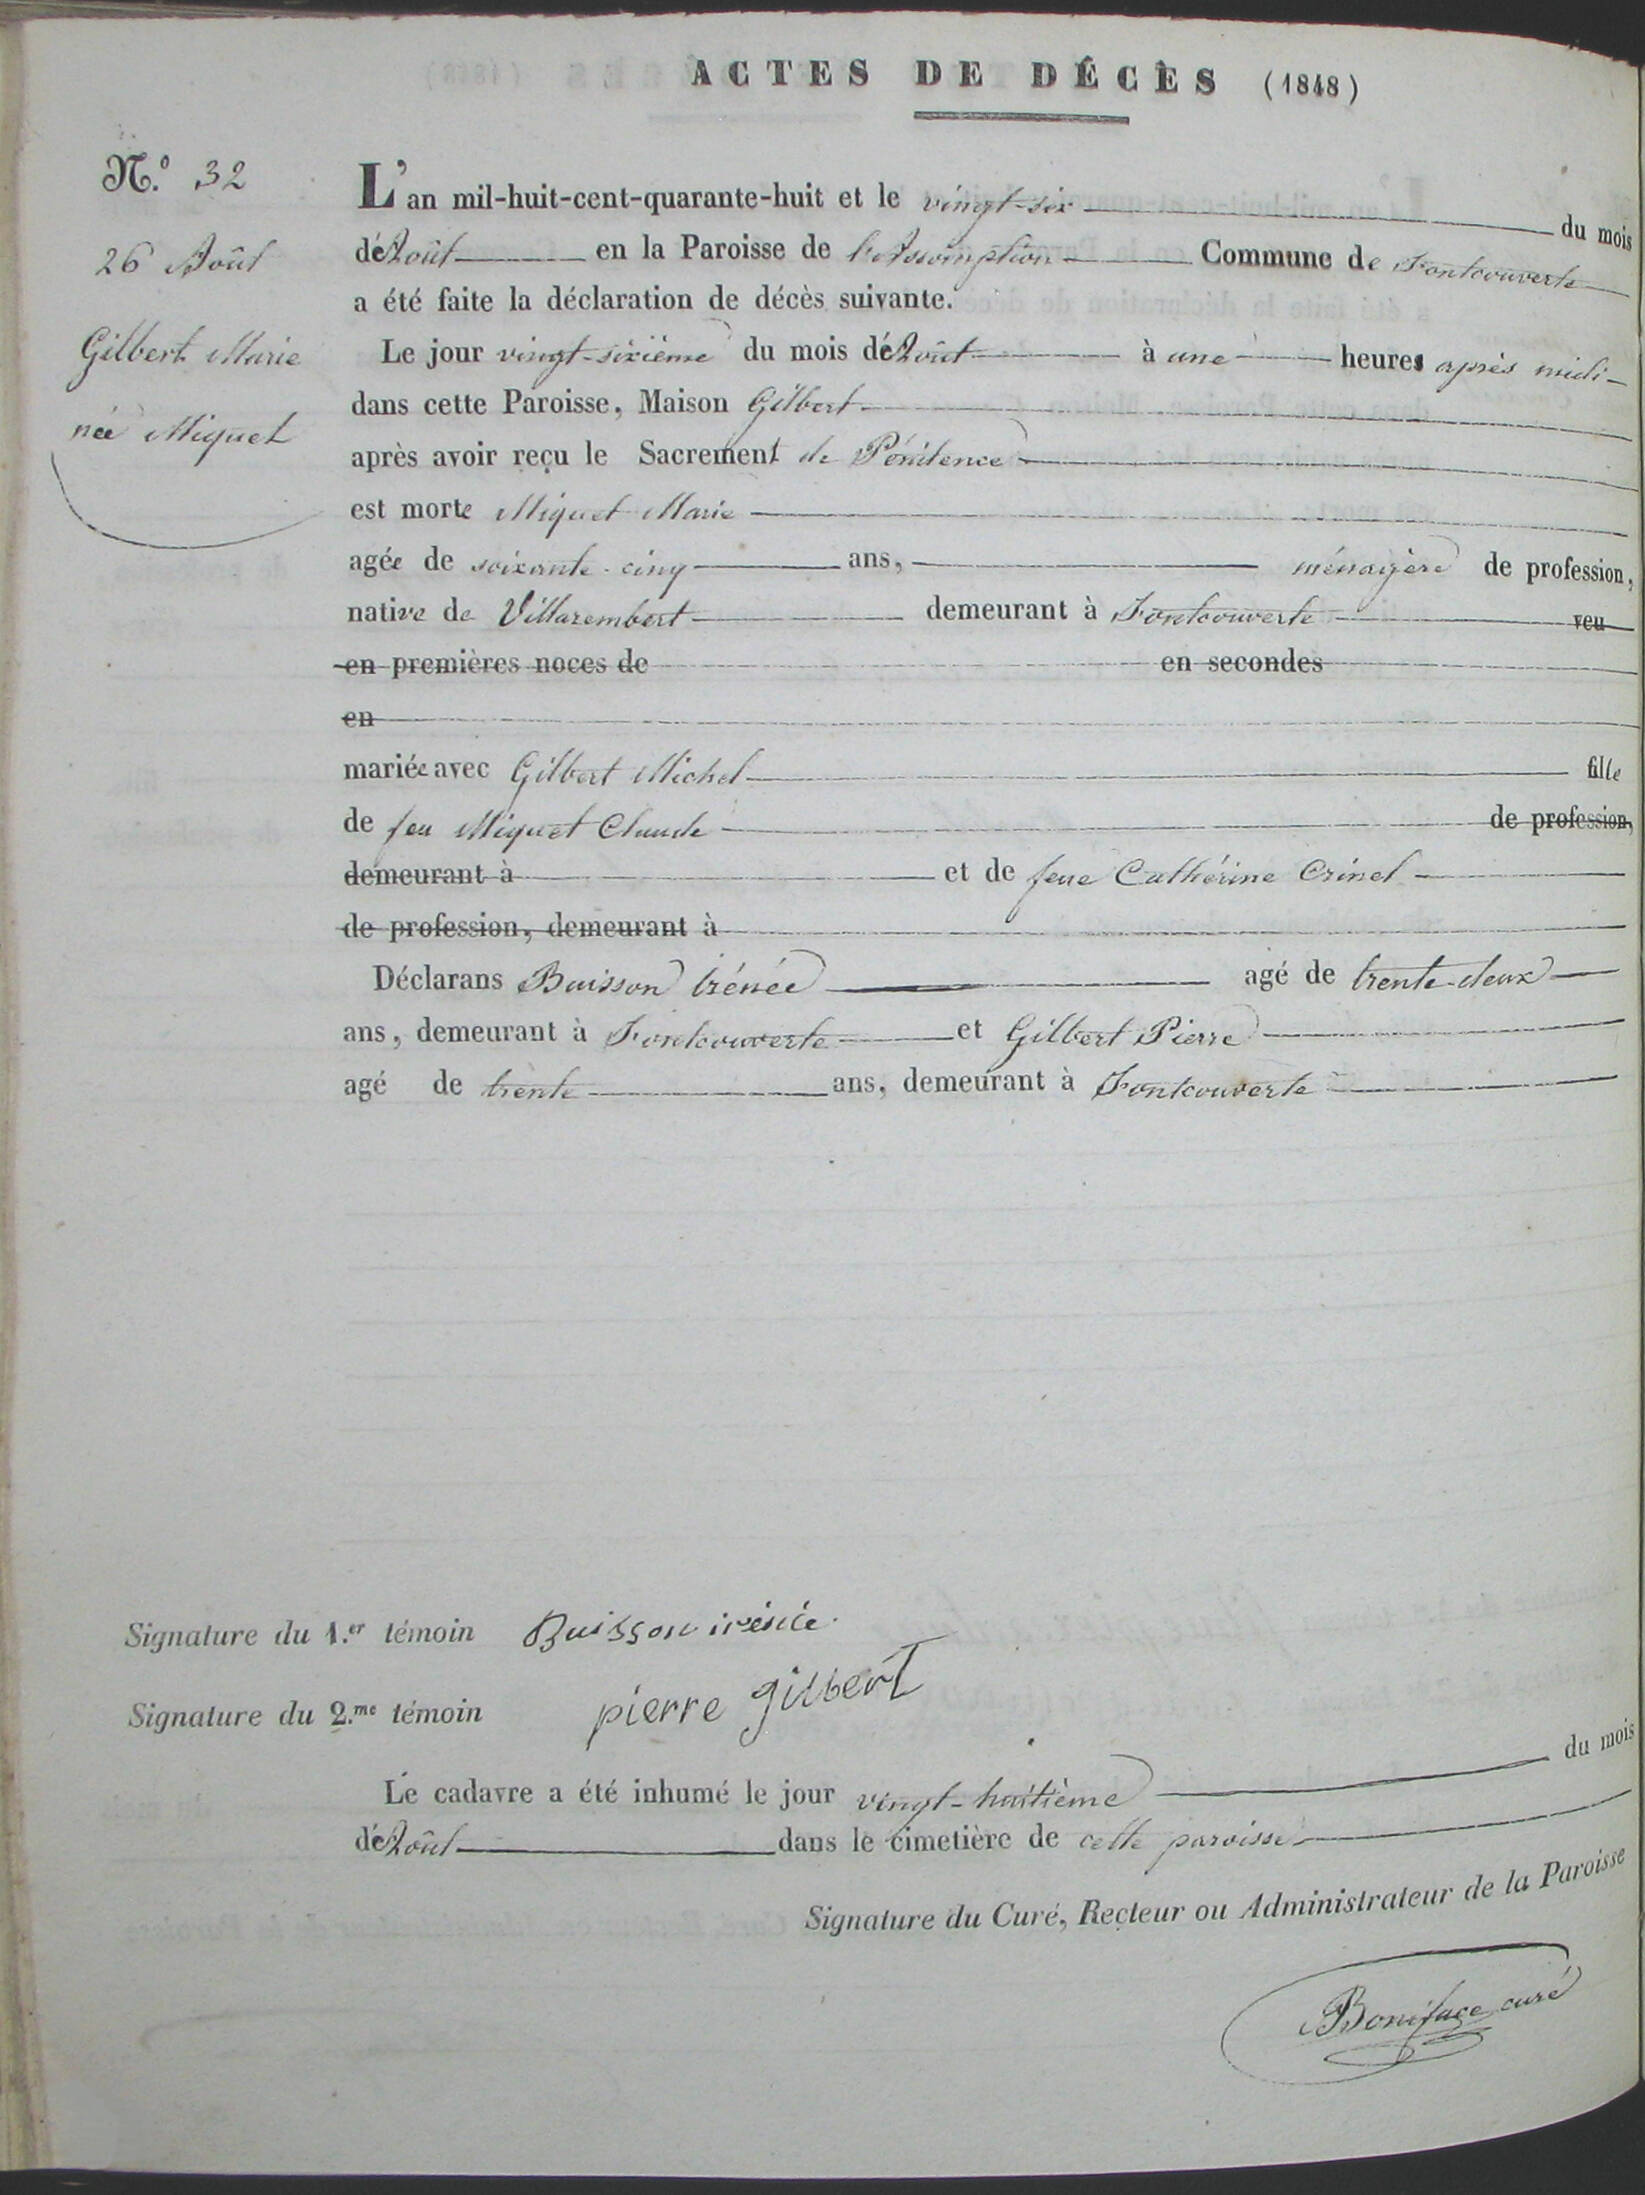 ACTES DE DÉCÈS (1848)
N.º 32
26 Août
Gilbert Marie
née Miquet
L'an mil-huit-cent-quarante-huit et le vingt-six du mois
d'Août en la Paroisse de l'Assomption Commune de Fontcouverte
a été faite la déclaration de décès suivante.
Le jour vingt-sixième du mois d'Août à une heures après midi
dans cette Paroisse, Maison Gilbert
après avoir reçu le Sacrement de Pénitence
est morte Miquet Marie
agée de soixante-cinq ans, ménagère de profession,
native de Villarembert demeurant à Fontcouverte veu
en premières noces de en secondes
en
mariée avec Gilbert Michel fille
de feu Miquet Claude de profession,
demeurant à et de feue Cathérine Crinel
de profession, demeurant à
Déclarans Buisson Irénée agé de trente-deux
ans, demeurant à Fontcouverte et Gilbert Pierre
agé de trente ans, demeurant à Fontcouverte
Signature du 1.er témoin Buisson irénée
Signature du 2.me témoin pierre gilbert
Le cadavre a été inhumé le jour vingt-huitième du mois
d'Août dans le cimetière de cette paroisse
Signature du Curé, Recteur ou Administrateur de la Paroisse
Boniface curé